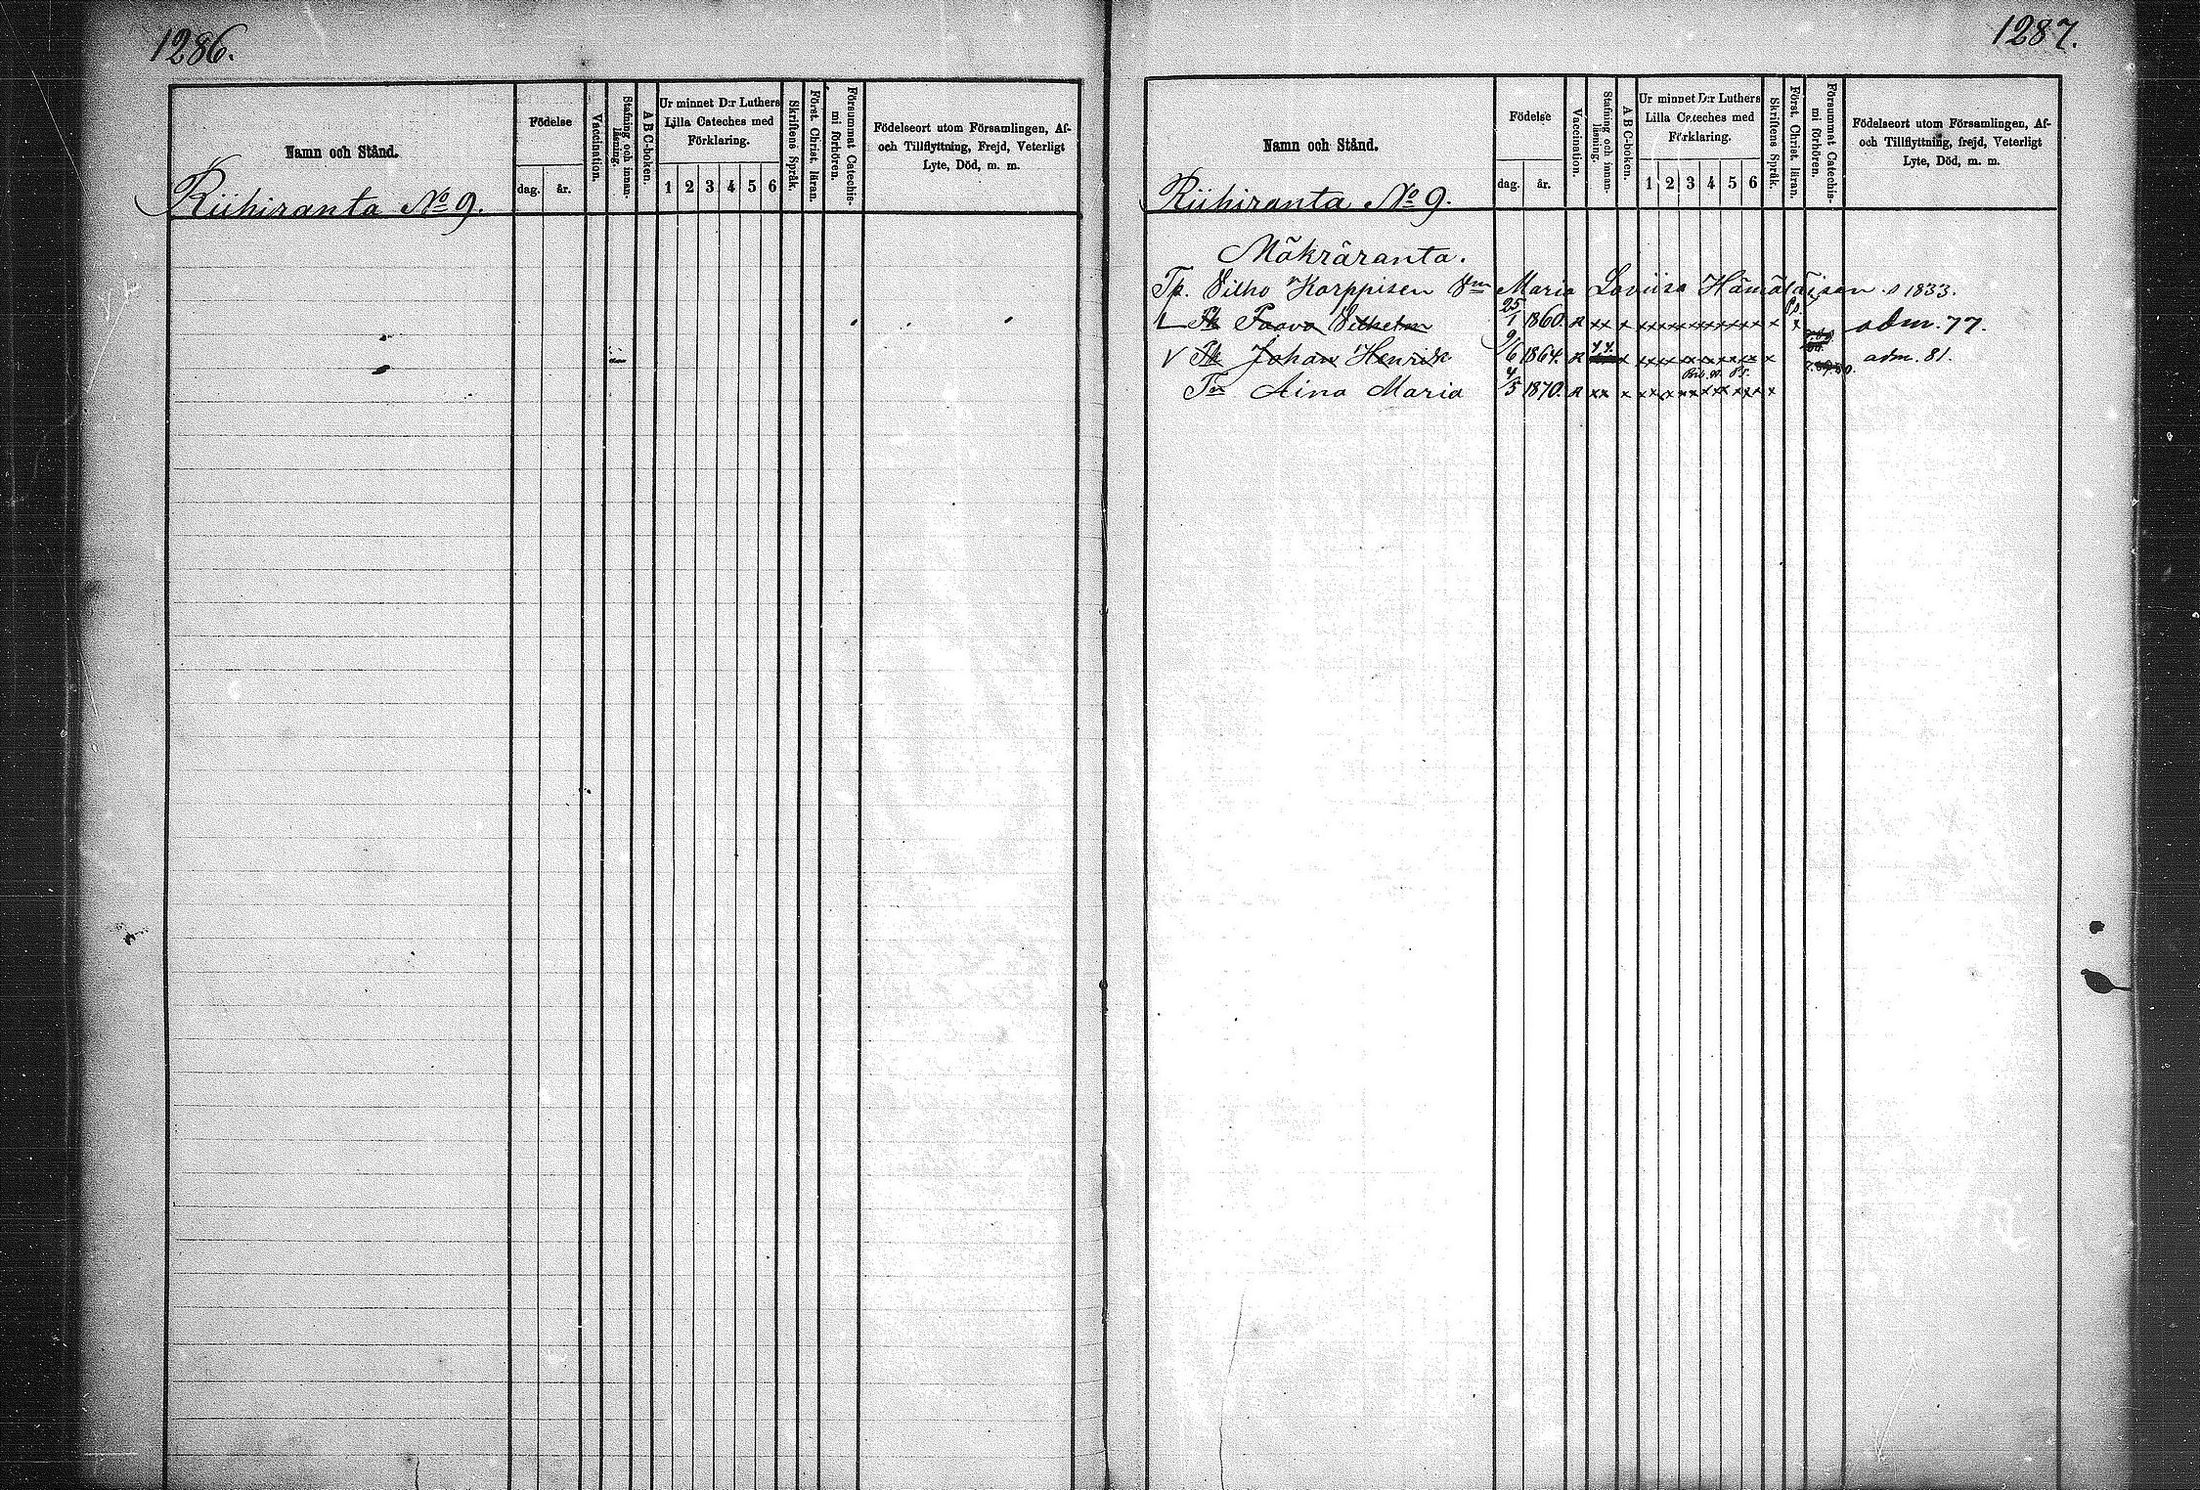 1286.
Namn och Stånd.
Födelse
dag. år.
Vaccination.
Stafning och innan-
läsning.
A B C-boken.
Ur minnet D:r Luthers
Lilla Cateches med
Förklaring.
1 2 3 4 5 6
Skriftens Språk.
Först. Christ. läran.
Försummat Catechis-
mi förhören.
Födelseort utom Församlingen, Af-
och Tillflyttning, Frejd, Veterligt
Lyte, Död, m. m.
Riihiranta No 9.
1287.
Namn och Stånd.
Födelse
dag. år.
Vaccination.
Stafning och innan-
läsning.
A B C-boken.
Ur minnet D:r Luthers
Lilla Cateches med
Förklaring.
1 2 3 4 5 6
Skriftens Språk.
Först. Christ. läran.
Försummat Catechis-
mi förhören.
Födelseort utom Församlingen, Af-
och Tillflyttning, frejd, Veterligt
Lyte, Död, m. m.
Riihiranta No 9.
Mäkräranta.
Tp. Vilho Korppisen Maria Loviisa Hämäläisen s 1833.
Paavo Vilhelm 25/1 1860. x xx x xxxxxxxxxxxx x x adm. 77.
V Johan Henrik 9/6 1864. x x xxxxxxxxxx x adm. 81.
Aina Maria 4/5 1870. x xx x xxxxxxxxxxxx x